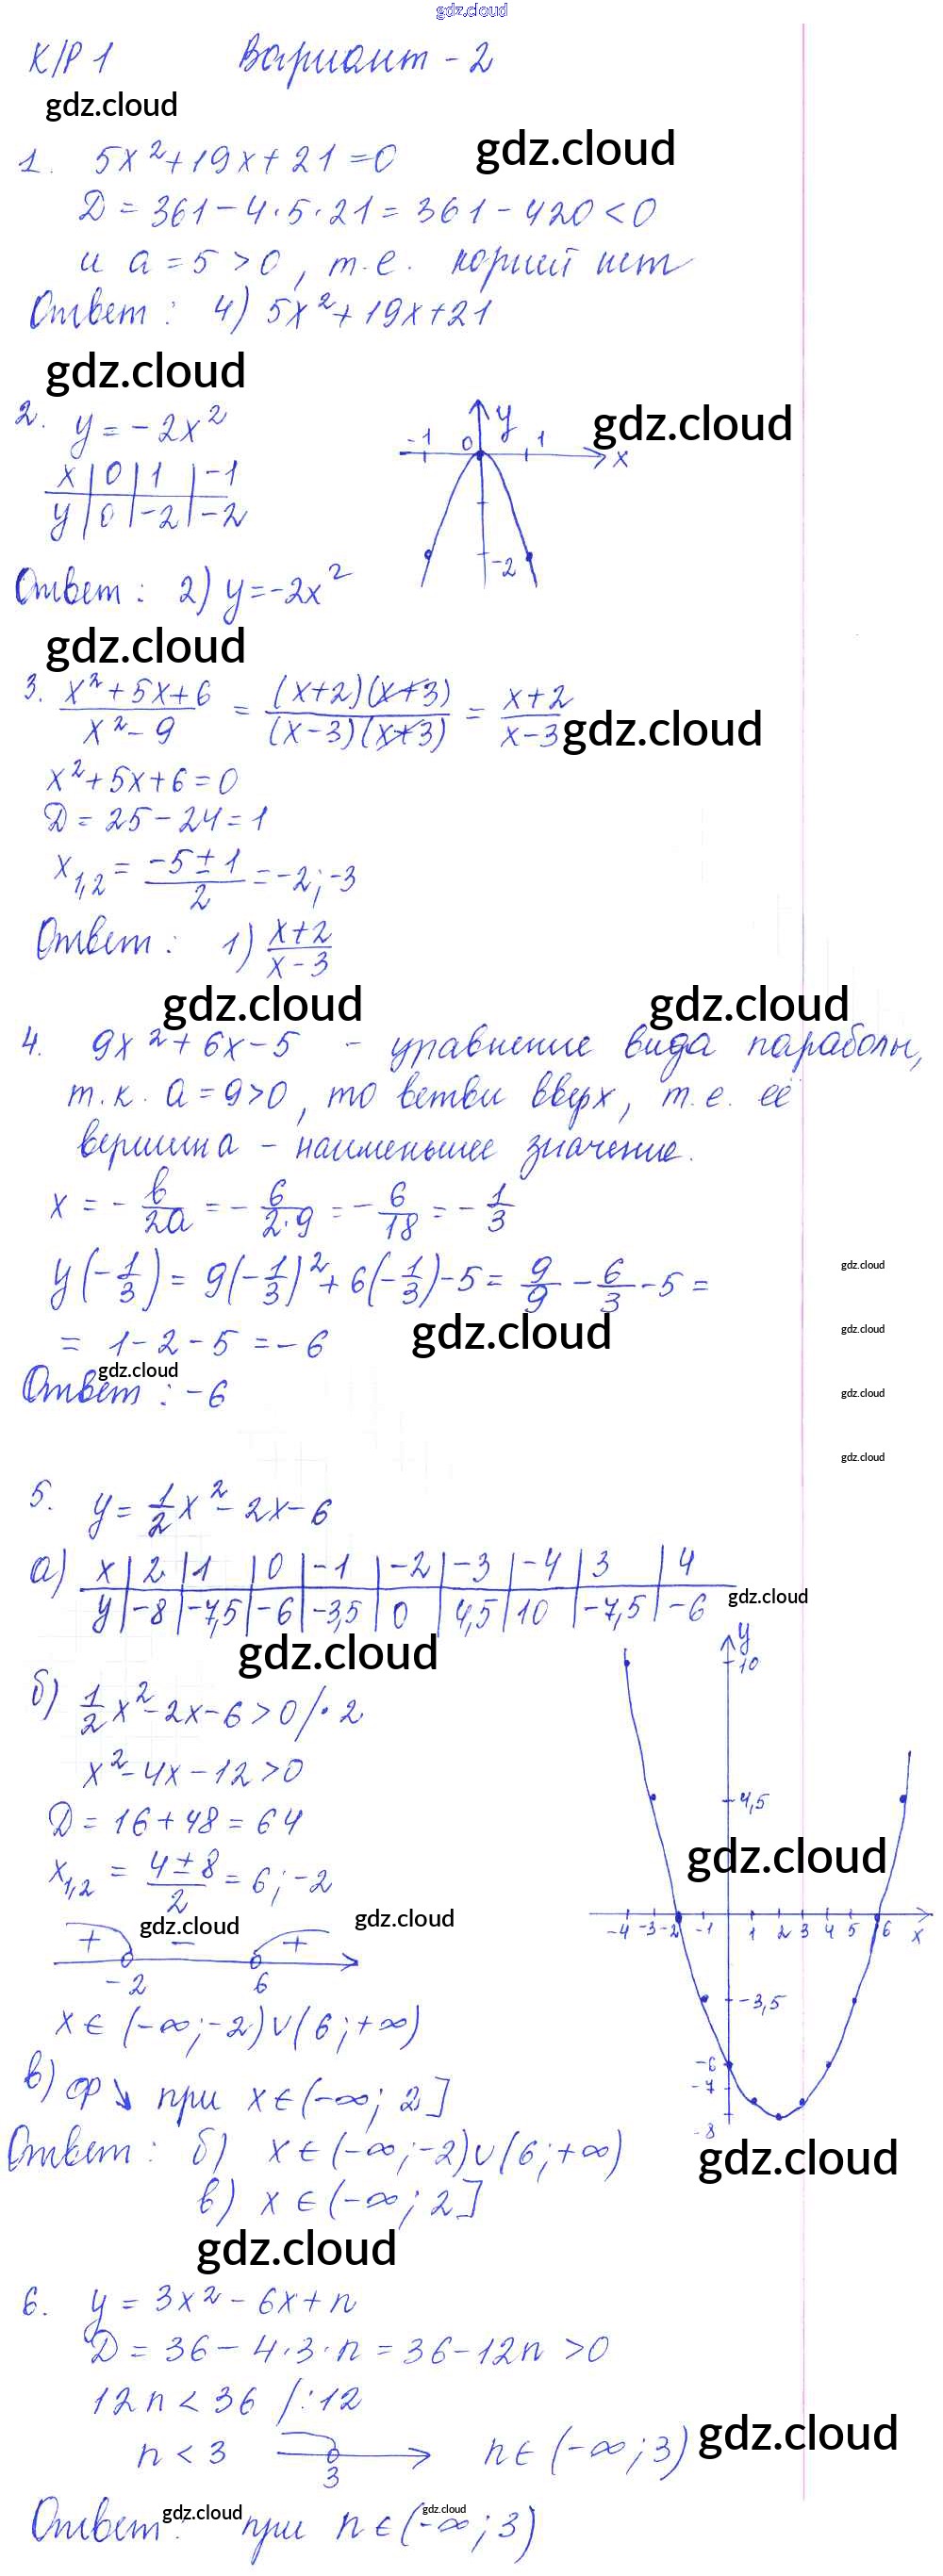 gdz.cloud
К/Р 1 Вариант - 2
gdz.cloud
1. 5x² + 19x + 21 = 0 gdz.cloud
D = 361 - 4·5·21 = 361 - 420 < 0
и a = 5 > 0, т.е. корней нет
Ответ: 4) 5x² + 19x + 21
gdz.cloud
2. y = -2x²
x | 0 | 1 | -1
y | 0 | -2 | -2
y gdz.cloud
-1 0 1 x
-2
Ответ: 2) y = -2x²
gdz.cloud
3. (x² + 5x + 6)/(x² - 9) = ((x+2)(x+3))/((x-3)(x+3)) = (x+2)/(x-3) gdz.cloud
x² + 5x + 6 = 0
D = 25 - 24 = 1
x₁,₂ = (-5 ± 1)/2 = -2; -3
Ответ: 1) (x+2)/(x-3)
gdz.cloud gdz.cloud
4. 9x² + 6x - 5 - уравнение вида параболы,
т.к. a = 9 > 0, то ветви вверх, т.е. её
вершина - наименьшее значение.
x = -b/2a = -6/(2·9) = -6/18 = -1/3
y(-1/3) = 9(-1/3)² + 6(-1/3) - 5 = 9/9 - 6/3 - 5 =
gdz.cloud
= 1 - 2 - 5 = -6 gdz.cloud
gdz.cloud
gdz.cloud
Ответ: -6
gdz.cloud
gdz.cloud
5. y = 1/2 x² - 2x - 6
а) x | 2 | 1 | 0 | -1 | -2 | -3 | -4 | 3 | 4
y | -8 | -7,5 | -6 | -3,5 | 0 | 4,5 | 10 | -7,5 | -6
gdz.cloud
gdz.cloud
б) 1/2 x² - 2x - 6 > 0 /·2
x² - 4x - 12 > 0
D = 16 + 48 = 64
x₁,₂ = (4 ± 8)/2 = 6; -2
+ - +
gdz.cloud gdz.cloud
-2 6
x ∈ (-∞; -2) ∪ (6; +∞)
y
10
4,5
gdz.cloud
-4 -3 -2 -1 1 2 3 4 5 6 x
-3,5
-6
-7
-8
в) ф ↘ при x ∈ (-∞; 2]
Ответ: б) x ∈ (-∞; -2) ∪ (6; +∞)
gdz.cloud
в) x ∈ (-∞; 2]
gdz.cloud
6. y = 3x² - 6x + n
D = 36 - 4·3·n = 36 - 12n > 0
12n < 36 /:12
n < 3 3 n ∈ (-∞; 3) gdz.cloud
Ответ: при n ∈ (-∞; 3)
gdz.cloud gdz.cloud